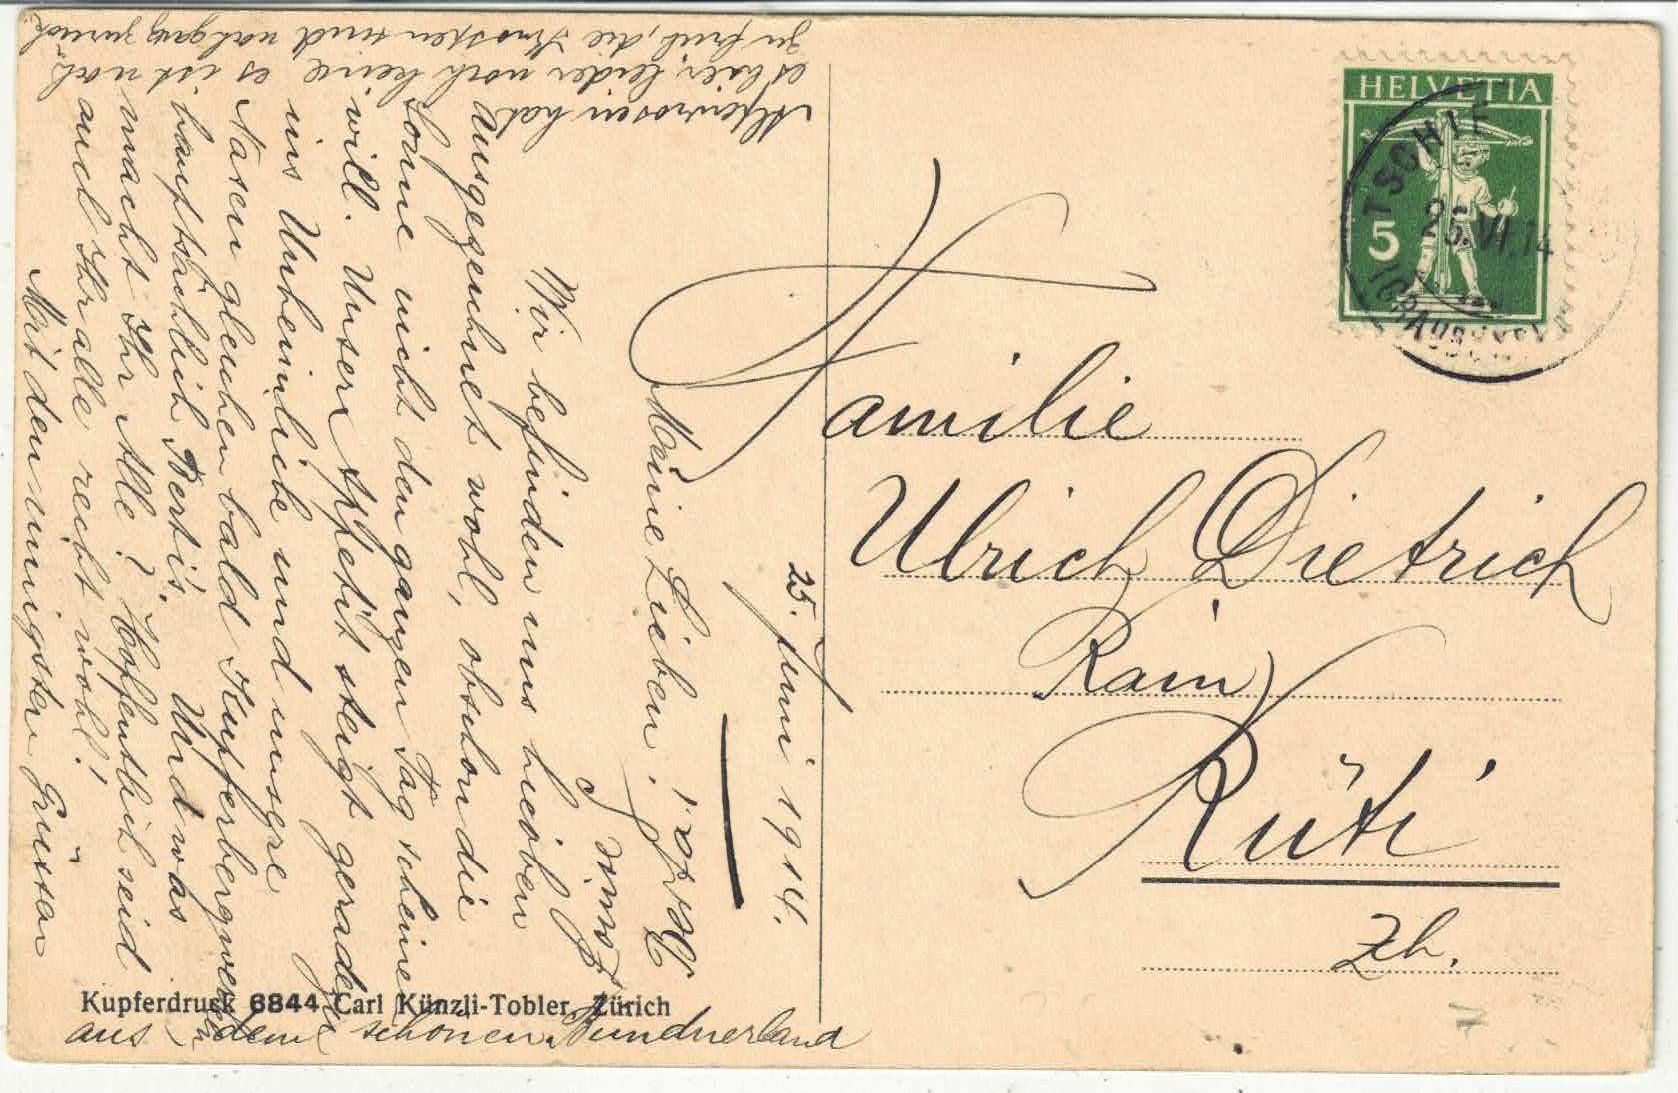 HELVETIA
5
TSCHIERV
25.VI.14
(GRAUBÜNDEN)
Familie
Ulrich Dietrich
Rain
Rüti
Zh.
25. Juni 1914.
Meine Lieben!
Wir befinden uns hieoben
ausgezeichnet wohl, obschon die
Sonne nicht den ganzen Tag scheinen
will. Unser Appetit steigt geradezu
ins Unheimliche und unsere
Nasen gleichen bald Kupferbergwerken
hauptsächlich Berti's. Und was
macht Ihr Alle? Hoffentlich seid
auch Ihr alle recht wohl!
Mit den innigsten Grüssen
aus dem schönen Bündnerland
Alpenrosen hat
es hier leider noch keine es ist noch
zu früh, die Knospen sind noch ganz zurück
Kupferdruck 6844 Carl Künzli-Tobler, Zürich